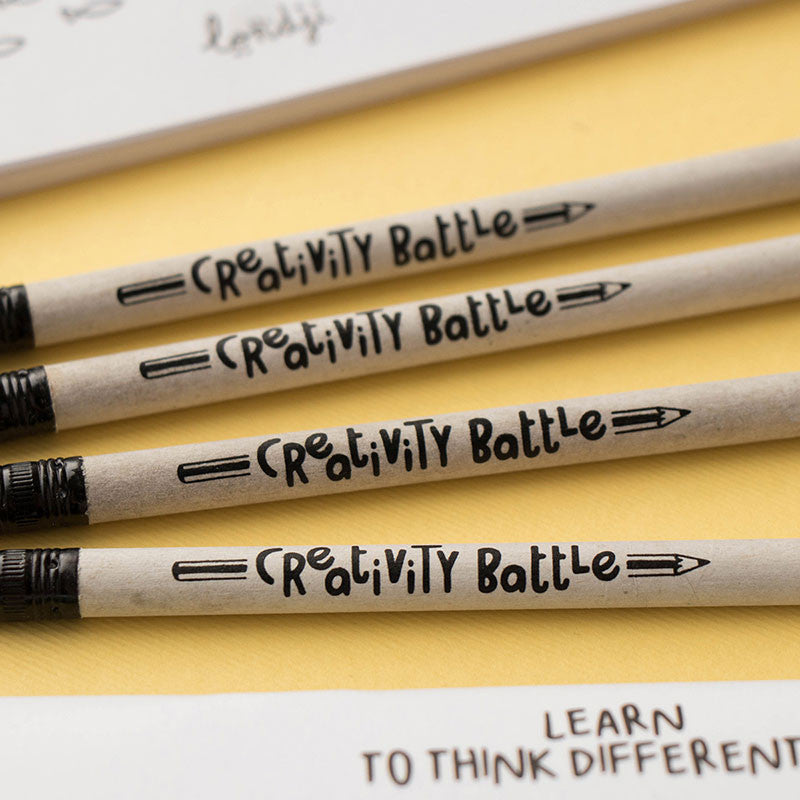 CReativiTY BattLe
CReativiTY BattLe
CReativiTY BattLe
CReativiTY BattLe
LEARN
TO THINK DIFFERENT